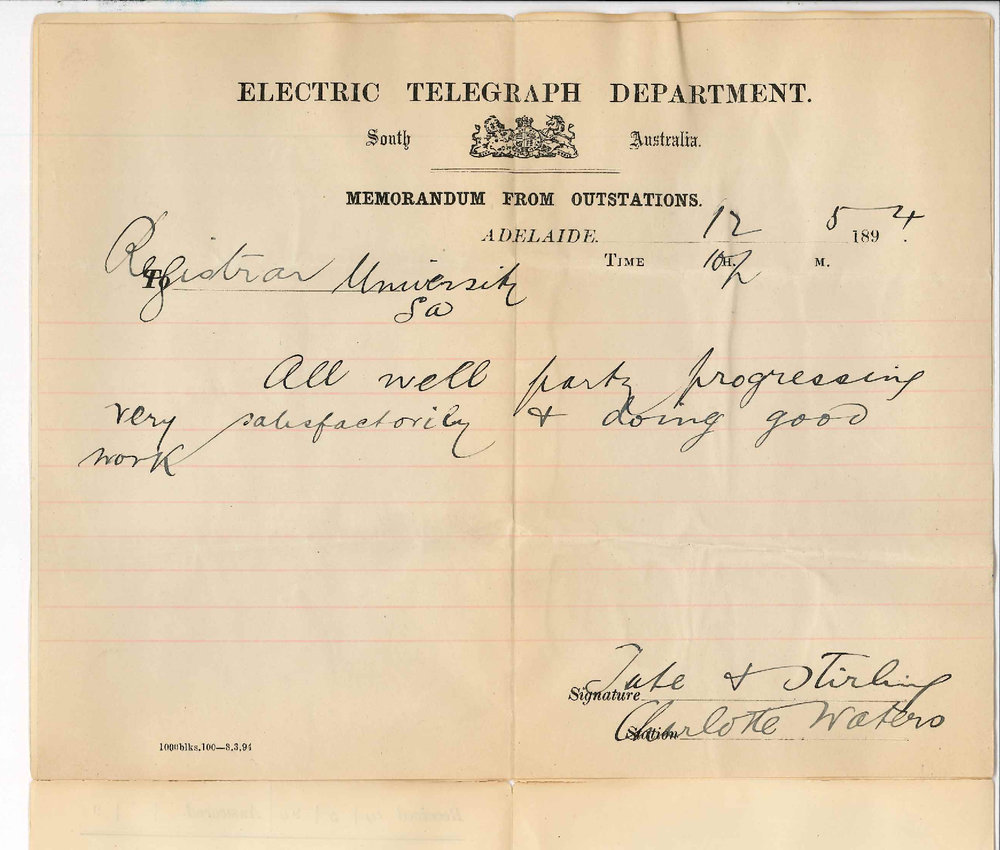 ELECTRIC TELEGRAPH DEPARTMENT.
South Australia.
MEMORANDUM FROM OUTSTATIONS.
ADELAIDE. 12 5 1894.
TIME H. M.
To Registrar University
SA
All well party progressing
very satisfactorily & doing good
work
Signature Tate & Stirling
Station Charlotte Waters
1000blks.100—8,3,94